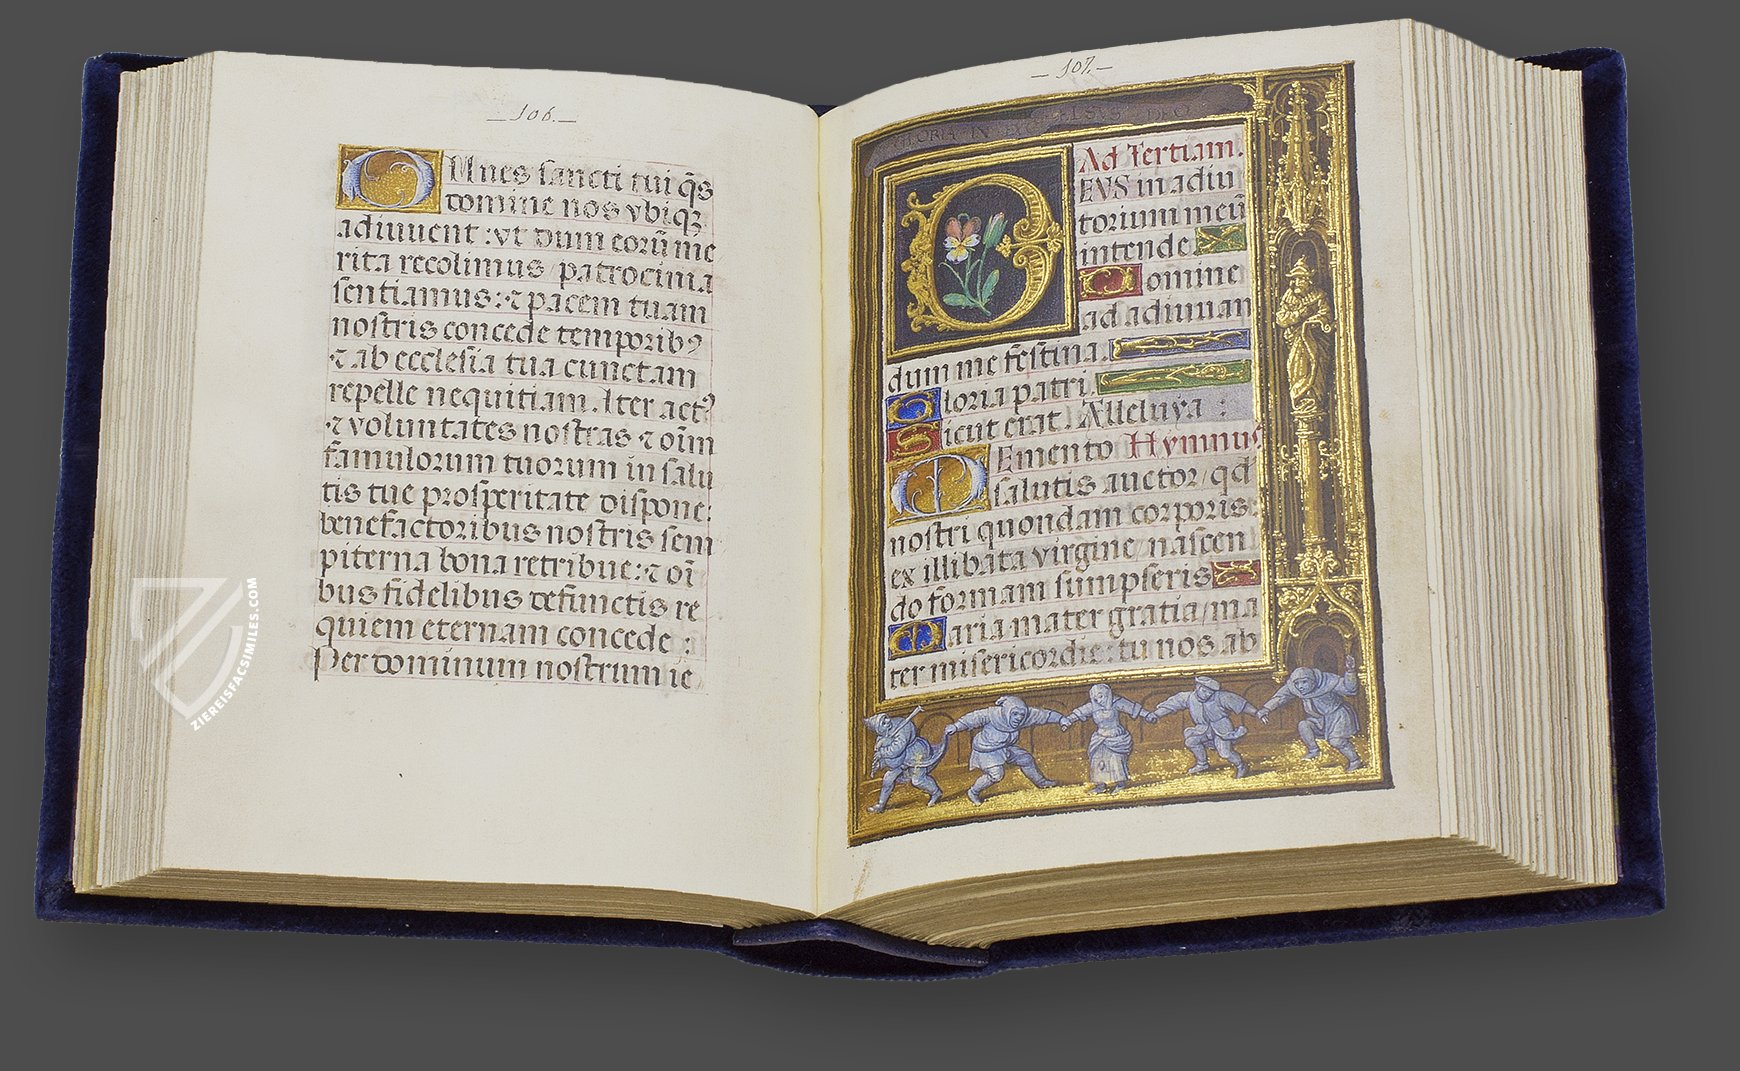 106.
OMnes sancti tui q̃s
domine nos vbiqȝ
adiuuent : vt dum eorũ me
rita recolimus / patrocinia
sentiamus : ⁊ pacem tuam
nostris concede temporibꝰ
⁊ ab ecclesia tua cunctam
repelle nequitiam. Iter actꝰ
⁊ voluntates nostras ⁊ oĩm
famulorum tuorum in salu
tis tue prosperitate dispone :
benefactoribus nostris sem
piterna bona retribue : ⁊ oĩ
bus fidelibus defunctis re
quiem eternam concede :
Per dominum nostrum ie
ZIEREISFACSIMILES.COM
107.
GLORIA IN EXCELSVS DEO
Ad Tertiam.
DEVS in adiu
torium meũ
intende
Domine
ad adiuuan
dum me festina.
Gloria patri.
Sicut erat. Alleluya :
MEmento Hymnus
salutis auctor / qd
nostri quondam corporis :
ex illibata virgine / nascen
do formam sumpseris
Maria mater gratia / ma
ter misericordie : tu nos ab